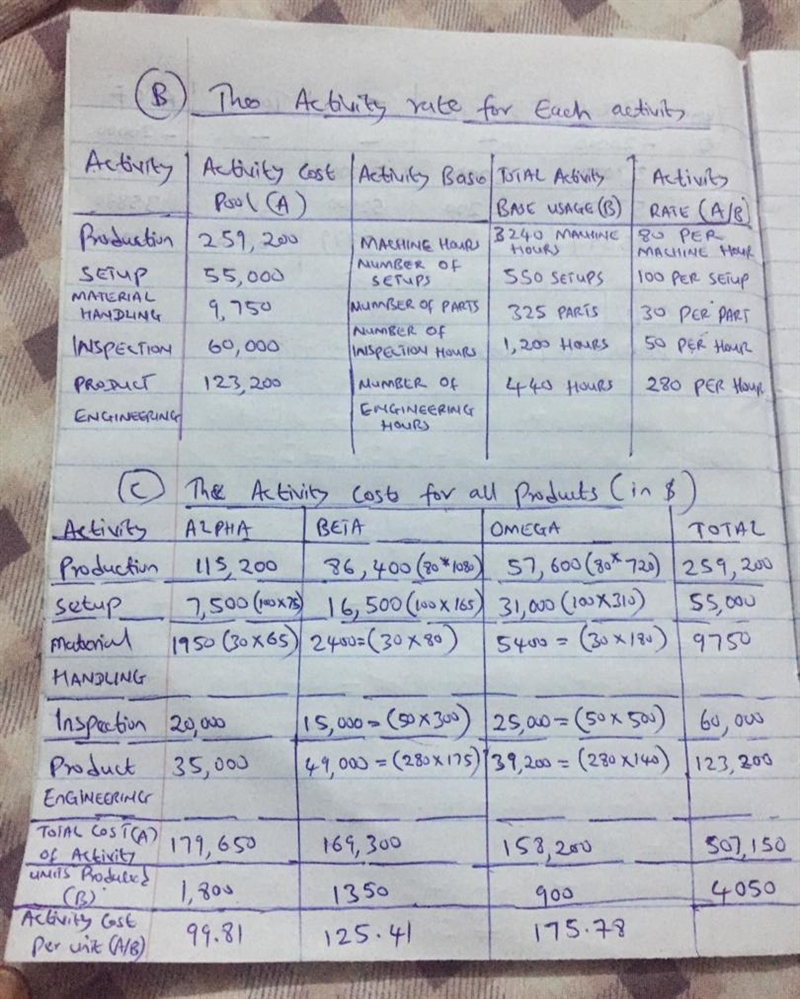 (B) The Activity rate for Each activity
Activity | Activity Cost Pool (A) | Activity Base | TOTAL Activity BASE USAGE (B) | Activity RATE (A/B)
Production | 259,200 | MACHINE HOURS | 3240 MACHINE HOURS | 80 PER MACHINE HOUR
SETUP | 55,000 | NUMBER OF SETUPS | 550 SETUPS | 100 PER SETUP
MATERIAL HANDLING | 9,750 | NUMBER OF PARTS | 325 PARTS | 30 PER PART
INSPECTION | 60,000 | NUMBER OF INSPECTION HOURS | 1,200 HOURS | 50 PER HOUR
PRODUCT ENGINEERING | 123,200 | NUMBER OF ENGINEERING HOURS | 440 HOURS | 280 PER HOUR
(C) The Activity Costs for all Products (in $)
Activity | ALPHA | BETA | OMEGA | TOTAL
Production | 115,200 | 86,400 (80*1080) | 57,600 (80*720) | 259,200
Setup | 7,500 (100x75) | 16,500 (100x165) | 31,000 (100X310) | 55,000
Material HANDLING | 1950 (30X65) | 2400=(30X80) | 5400 = (30X180) | 9750
Inspection | 20,000 | 15,000 = (50X300) | 25,000 = (50X500) | 60,000
Product ENGINEERING | 35,000 | 49,000 = (280X175) | 39,200 = (280X140) | 123,200
TOTAL COST (A) of Activity | 179,650 | 169,300 | 158,200 | 507,150
UNITS Produced (B) | 1,800 | 1350 | 900 | 4050
Activity Cost Per unit (A/B) | 99.81 | 125.41 | 175.78